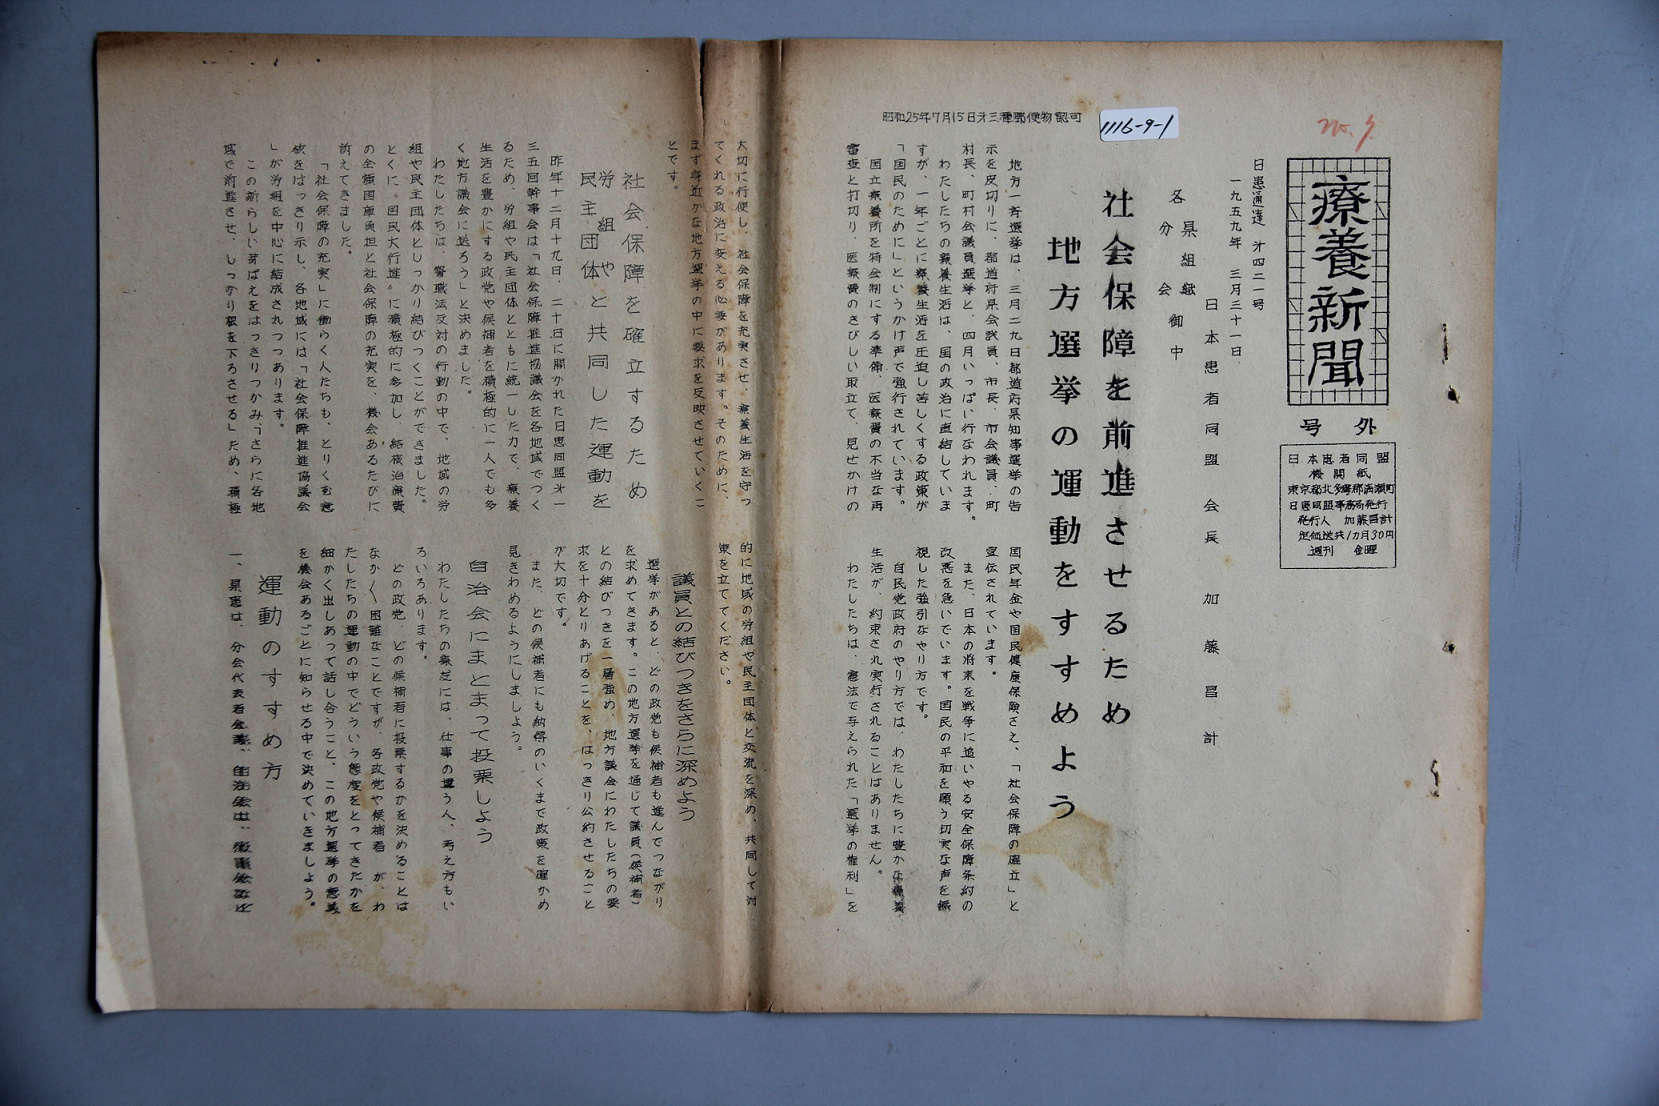 昭和25年7月15日オ三種郵便物認可
1116-9-1
No. 9.
療養新聞
号外
日本患者同盟
機関紙
東京都北多摩郡清瀬町
日患同盟事務局発行
発行人 加藤昌計
定価送共1カ月30円
週刊 金曜
日患通達 オ四二一号
一九五九年 三月三十一日
日本患者同盟 会長 加藤昌計
各 県組織
分会 御中
社会保障を前進させるため
地方選挙の運動をすすめよう
地方一斉選挙は、三月二九日都道府県知事選挙の告
示を皮切りに、都道府県会議員、市長、市会議員、町
村長、町村会議員選挙と、四月いっぱい行なわれます。
わたしたちの療養生活は、国の政治に直結していま
すが、一年ごとに療養生活を圧迫し苦しくする政策が
「国民のために」というかけ声で強行されています。
国立療養所を特会制にする準備、医療費の不当な再
審査と打切り、医療費のきびしい取立て、見せかけの
国民年金や国民健康保険さえ、「社会保障の確立」と
宣伝されています。
また、日本の将来を戦争に追いやる安全保障条約の
改悪を急いでいます。国民の平和を願う切実な声を無
視した強引なやり方です。
自民党政府のやり方では、わたしたちに豊かな療養
生活が、約束され実行されることはありません。
わたしたちは、憲法で与えられた「選挙の権利」を
大切に行使し、社会保障を充実させ、療養生活を守っ
てくれる政治に変える必要があります。そのために、
まず身近かな地方選挙の中に要求を反映させていくこ
とです。
社会保障を確立するため
労組や
民主団体と共同した運動を
昨年十二月十九日、二十日に開かれた日患同盟オ一
三五回幹事会は「社会保障推進協議会を各地域でつく
るため、労組や民主団体とともに統一した力で、療養
生活を豊かにする政党や候補者を積極的に一人でも多
く地方議会に送ろう」と決めました。
わたしたちは、警職法反対の行動の中で、地域の労
組や民主団体としっかり結びつくことができました。
とくに、国民大行進に積極的に参加し、結核治療費
の全額国庫負担と社会保障の充実を、機会あるたびに
訴えてきました。
「社会保障の充実」に働らく人たちも、とりくむ意
欲をはっきり示し、各地域には「社会保障推進協議会
」が労組を中心に結成されつつあります。
この新らしい芽ばえをはっきりつかみ、「さらに各地
域で前進させ、しっかり根を下ろさせる」ため、積極
的に地域の労組や民主団体と交流を深め、共同して対
策を立ててください。
議員との結びつきをさらに深めよう
選挙があると、どの政党も候補者も進んでつながり
を求めてきます。この地方選挙を通じて議員(候補者)
との結びつきを一層強め、地方議会にわたしたちの要
求を十分とりあげることを、はっきり公約させること
が大切です。
また、どの候補者にも納得のいくまで政策を確かめ
見きわめるようにしましょう。
自治会にまとまって投票しよう
わたしたちの療養には、仕事の違う人、考え方もい
ろいろあります。
どの政党、どの候補者に投票するかを決めることは
なか〱困難なことですが、各政党や候補者が、わ
たしたちの運動の中でどういう態度をとってきたかを
細かく出しあって話し合うこと、この地方選挙の意義
を機会あるごとに知らせる中で決めていきましょう。
運動のすすめ方
一、県患は、分会代表者会議、